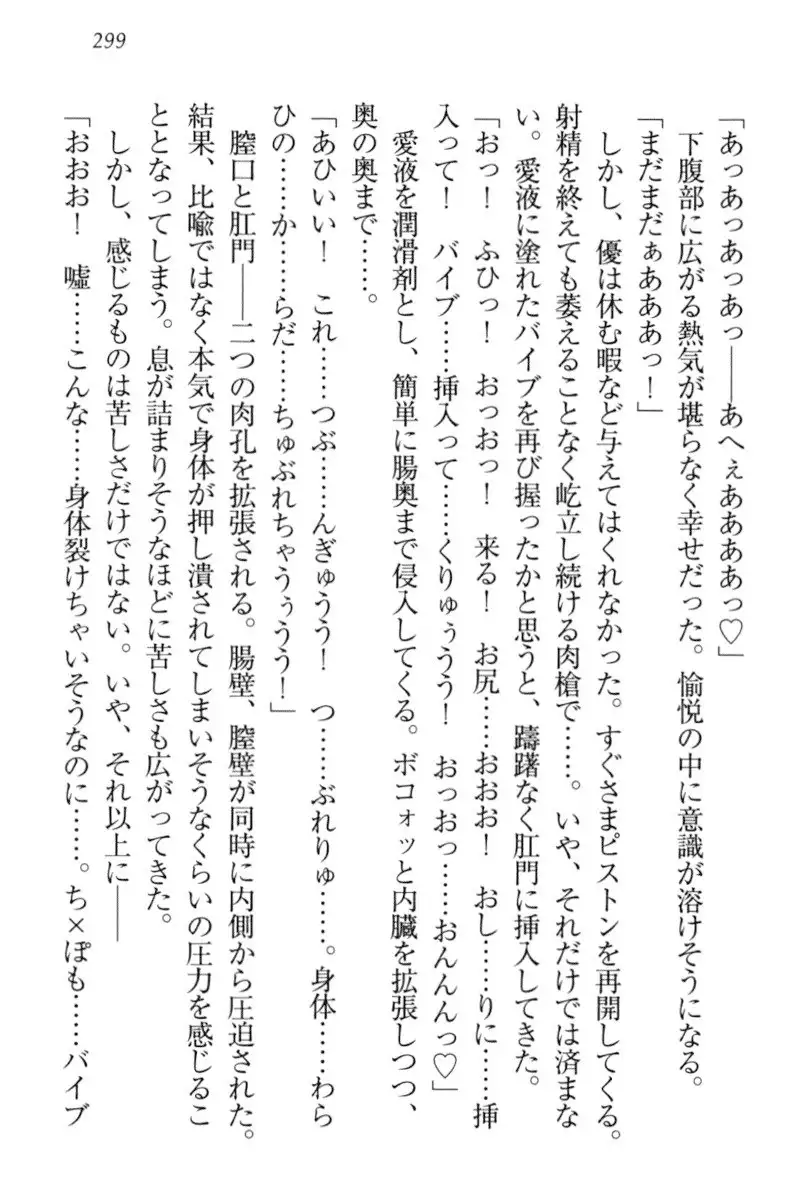 299
「あっあっあっあっ――あへぇああああっ♡」
　下腹部に広がる熱気が堪らなく幸せだった。愉悦の中に意識が溶けそうになる。
「まだまだぁあああっ！」
　しかし、優は休む暇など与えてはくれなかった。すぐさまピストンを再開してくる。
射精を終えても萎えることなく屹立し続ける肉槍で……。いや、それだけでは済まな
い。愛液に塗れたバイブを再び握ったかと思うと、躊躇なく肛門に挿入してきた。
「おっ！　ふひっ！　おっおっ！　来る！　お尻……おおお！　おし……りに……挿
入って！　バイブ……挿入って……くりゅぅうう！　おっおっ……おんんんっ♡」
　愛液を潤滑剤とし、簡単に腸奥まで侵入してくる。ボコォッと内臓を拡張しつつ、
奥の奥まで……。
「あひいい！　これ……つぶ……んぎゅうう！　つ……ぶれりゅ……。身体……わら
ひの……か……らだ……ちゅぶれちゃうぅうう！」
　膣口と肛門――二つの肉孔を拡張される。腸壁、膣壁が同時に内側から圧迫された。
結果、比喩ではなく本気で身体が押し潰されてしまいそうなくらいの圧力を感じるこ
ととなってしまう。息が詰まりそうなほどに苦しさも広がってきた。
　しかし、感じるものは苦しさだけではない。いや、それ以上に――
「おおお！　嘘……こんな……身体裂けちゃいそうなのに……。ち×ぽも……バイブ